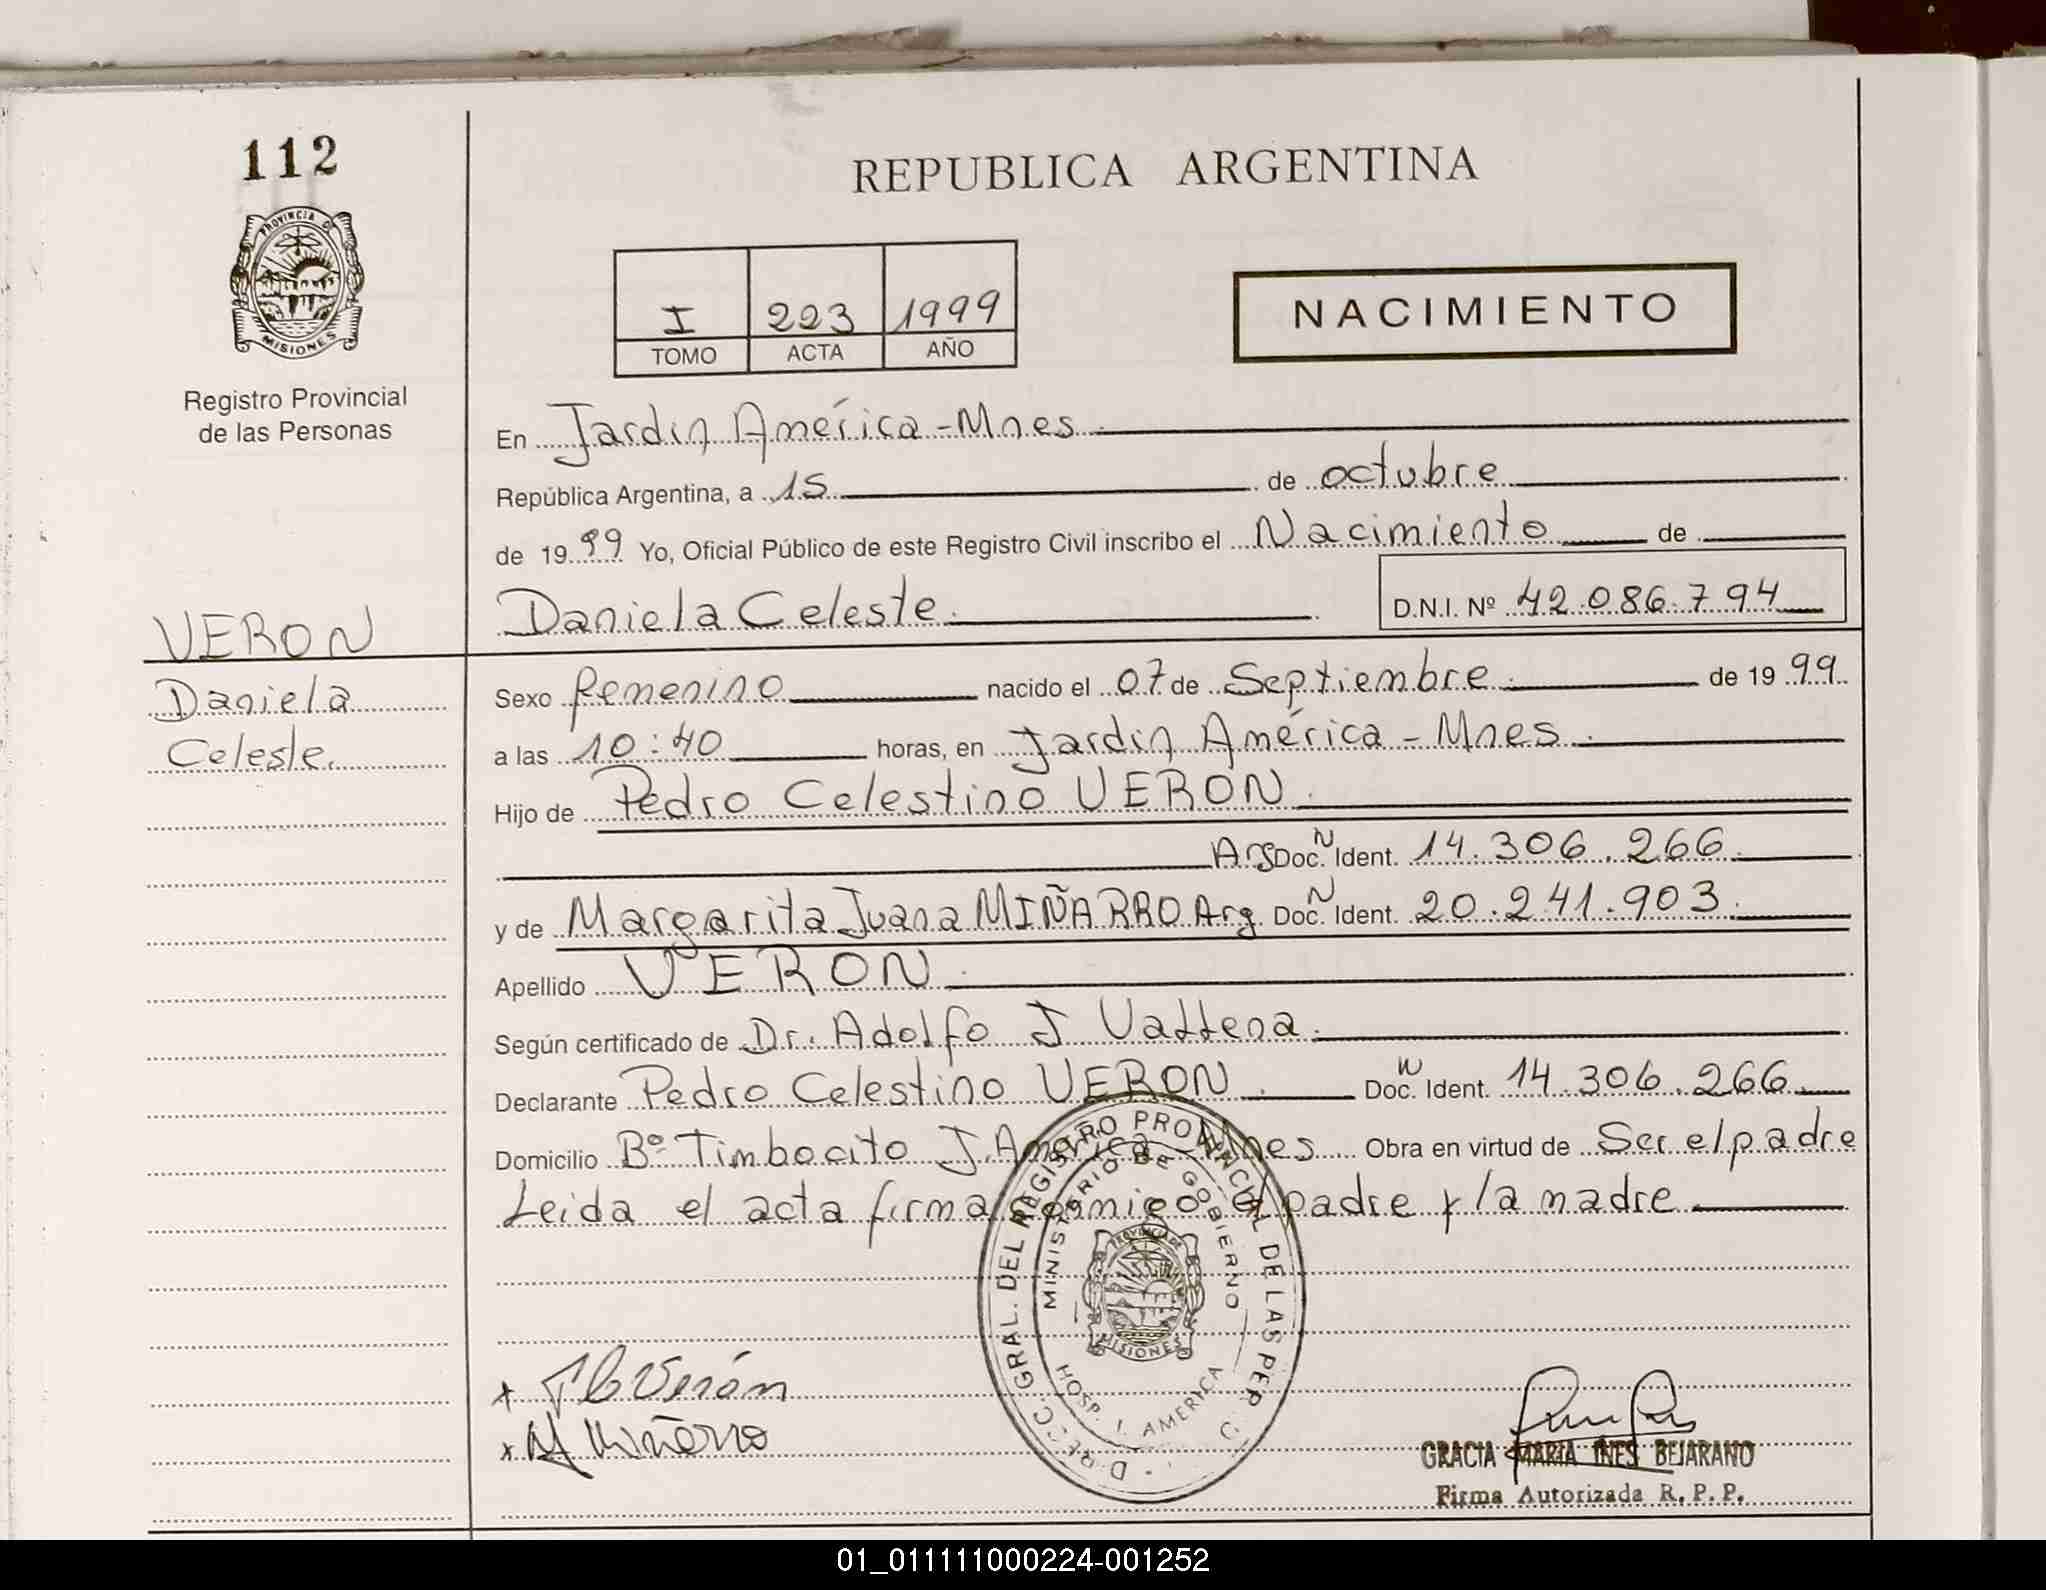 112
PROVINCIA DE
MISIONES
Registro Provincial
de las Personas
VERON
Daniela
Celeste.
REPUBLICA ARGENTINA
I 223 1999
TOMO ACTA AÑO
NACIMIENTO
En Jardin América - Mnes.
República Argentina, a 15 de octubre
de 1999 Yo, Oficial Público de este Registro Civil inscribo el Nacimiento de
Daniela Celeste. D.N.I. Nº 42.086.794
Sexo femenino nacido el 07 de Septiembre de 1999
a las 10:40 horas, en Jardin América - Mnes.
Hijo de Pedro Celestino VERON.
Arg Doc. N Ident. 14.306.266
y de Margarita Juana MIÑARRO Arg. Doc. N Ident. 20.241.903.
Apellido VERON.
Según certificado de Dr. Adolfo J
Declarante Pedro Celestino VERON. Doc. N Ident. 14.306.266
Domicilio Bº Timbocito J. América Mnes Obra en virtud de Ser el padre
Leida el acta firma conmigo el padre y la madre
DIRECC. GRAL. DEL REGISTRO PROVINCIAL DE LAS PER.
MINISTERIO DE GOBIERNO
PROVINCIA DE
MISIONES
HOSP. I. AMERICA
x Verón
x M Miñarro
GRACIA MARIA INES BEJARANO
Firma Autorizada R. P. P.
01_011111000224-001252